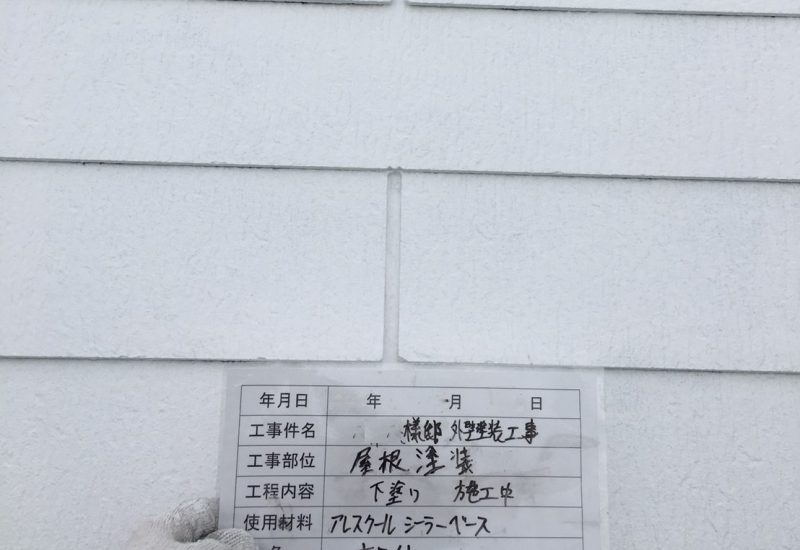 年月日 年 月 日
工事件名 様邸 外壁塗装工事
工事部位 屋根塗装
工程内容 下塗り 施工中
使用材料 アレスクール シーラーベース